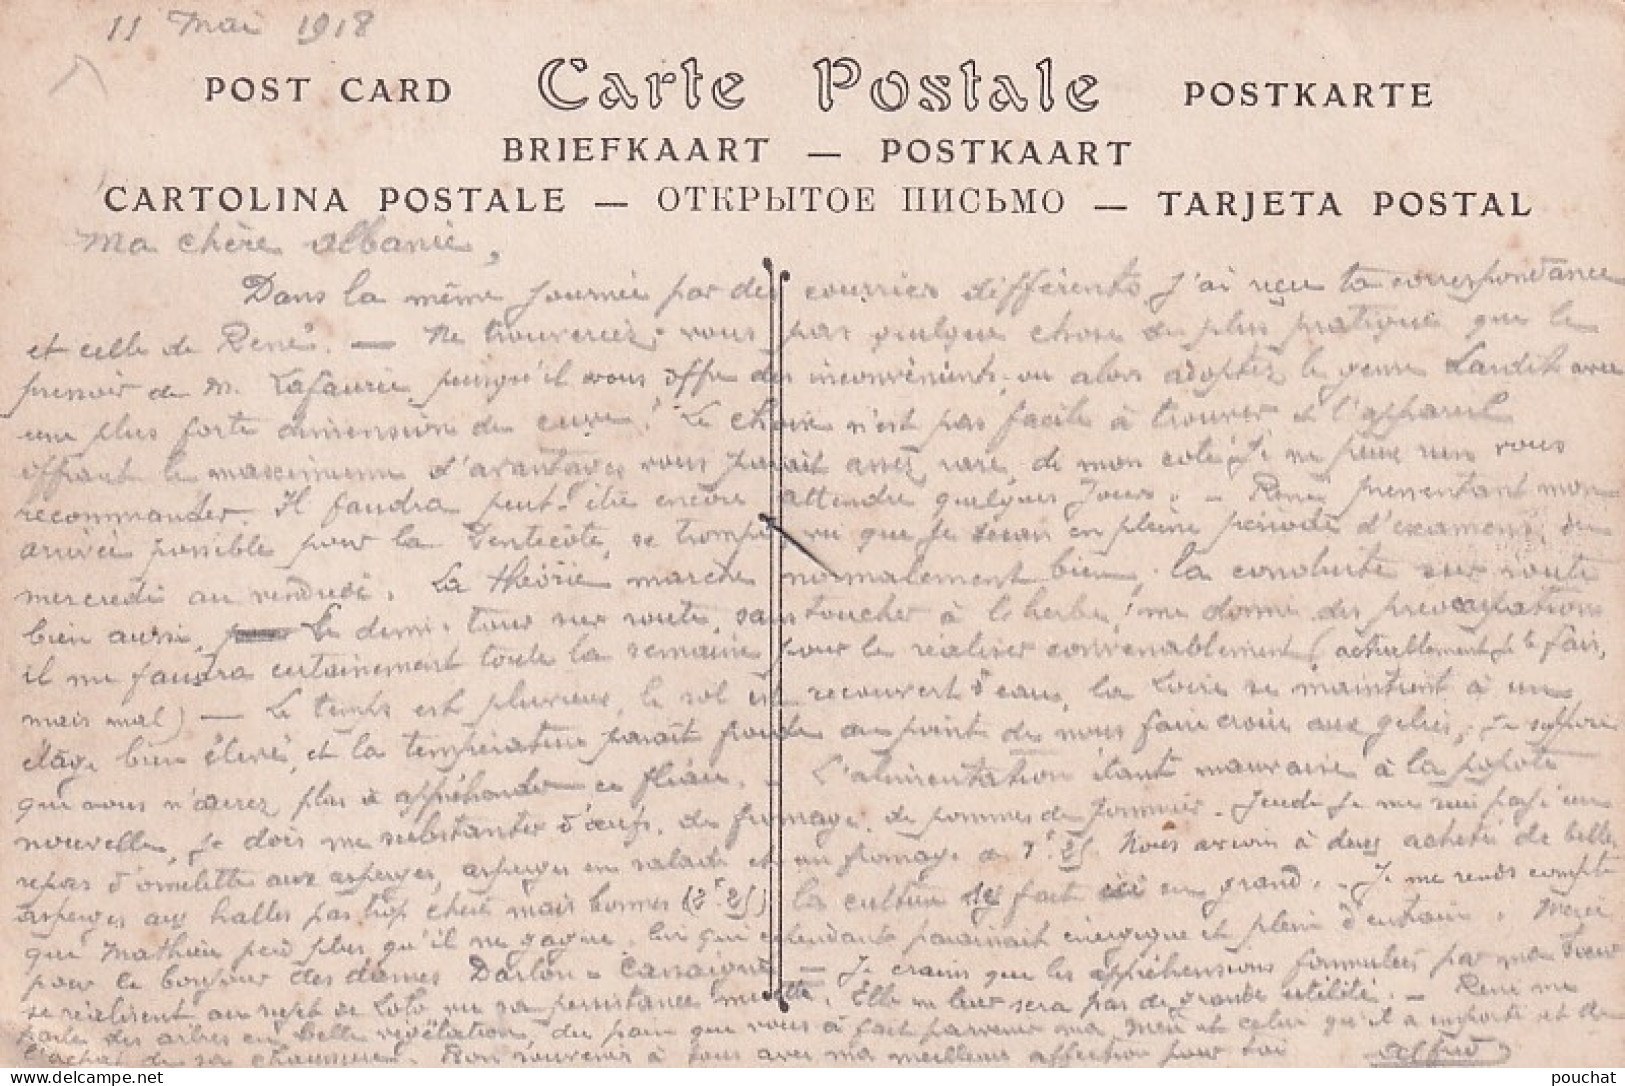 11 Mai 1918
POST CARD Carte Postale POSTKARTE
BRIEFKAART — POSTKAART
CARTOLINA POSTALE — ОТКРЫТОЕ ПИСЬМО — TARJETA POSTAL
Ma chère Albanie,
Dans la même journée par des courriers différents J'ai reçu ta correspondance
et celle de René. — Ne trouveriez-vous pas quelque chose de plus pratique que le
pressoir de M. Lafaurie, puisqu'il vous offre des inconvénients, ou alors adoptez le genre Landit avec
une plus forte dimension de cuve. Le choix n'est pas facile à trouver et l'appareil
offrant le maximum d'avantages vous parait assez rare, de mon coté Je ne peux rien vous
recommander. Il faudra peut-être encore attendre quelques Jours. — René pressentant mon
arrivée possible pour la Pentecôte, se trompe, vu que je serai en pleine période d'examens, du
mercredi au vendredi. La théorie marche normalement bien, la conduite sur route
bien aussi, le demi-tour sur route, sans toucher à l'herbe, me donne des préoccupations
il me faudra certainement toute la semaine pour le réaliser convenablement (actuellement Je le fais,
mais mal) — Le temps est pluvieux, le sol est recouvert d'eau, la Loire se maintient à un
étage bien élevé, et la température parait froide au point de nous faire croire aux gelées, Je suppose
que vous n'aurez plus à appréhender ce fléau. — L'alimentation étant mauvaise à la popote
nouvelle, je dois me substanter d'œufs, de fromage, de pommes de pommier. Jeudi Je me suis payé un
repas d'omelette aux asperges, asperges en salade et un fromage à 1f.25. Nous avions à deux acheté de belles
asperges aux halles pas trop chères mais bonnes (2f.25) la culture se fait ici en grand. — Je me rends compte
que Mathieu perd plus qu'il ne gagne, lui qui cependant paraissait énergique et plein d'entrain. Merci
pour le bonjour des dames Darlon - Cassaigne — Je crains que les appréhensions formulées par ma sœur
se réalisent au sujet de Loto vu sa persistance muette. Elle ne leur sera pas de grande utilité. — René me
parle des arbres en belle végétation, du pain que vous a fait parvenir ma et celui qu'il a emporté et de
l'achat de sa chaussure. Bon souvenir à tous avec ma meilleure affection pour toi Alfred
pouchat